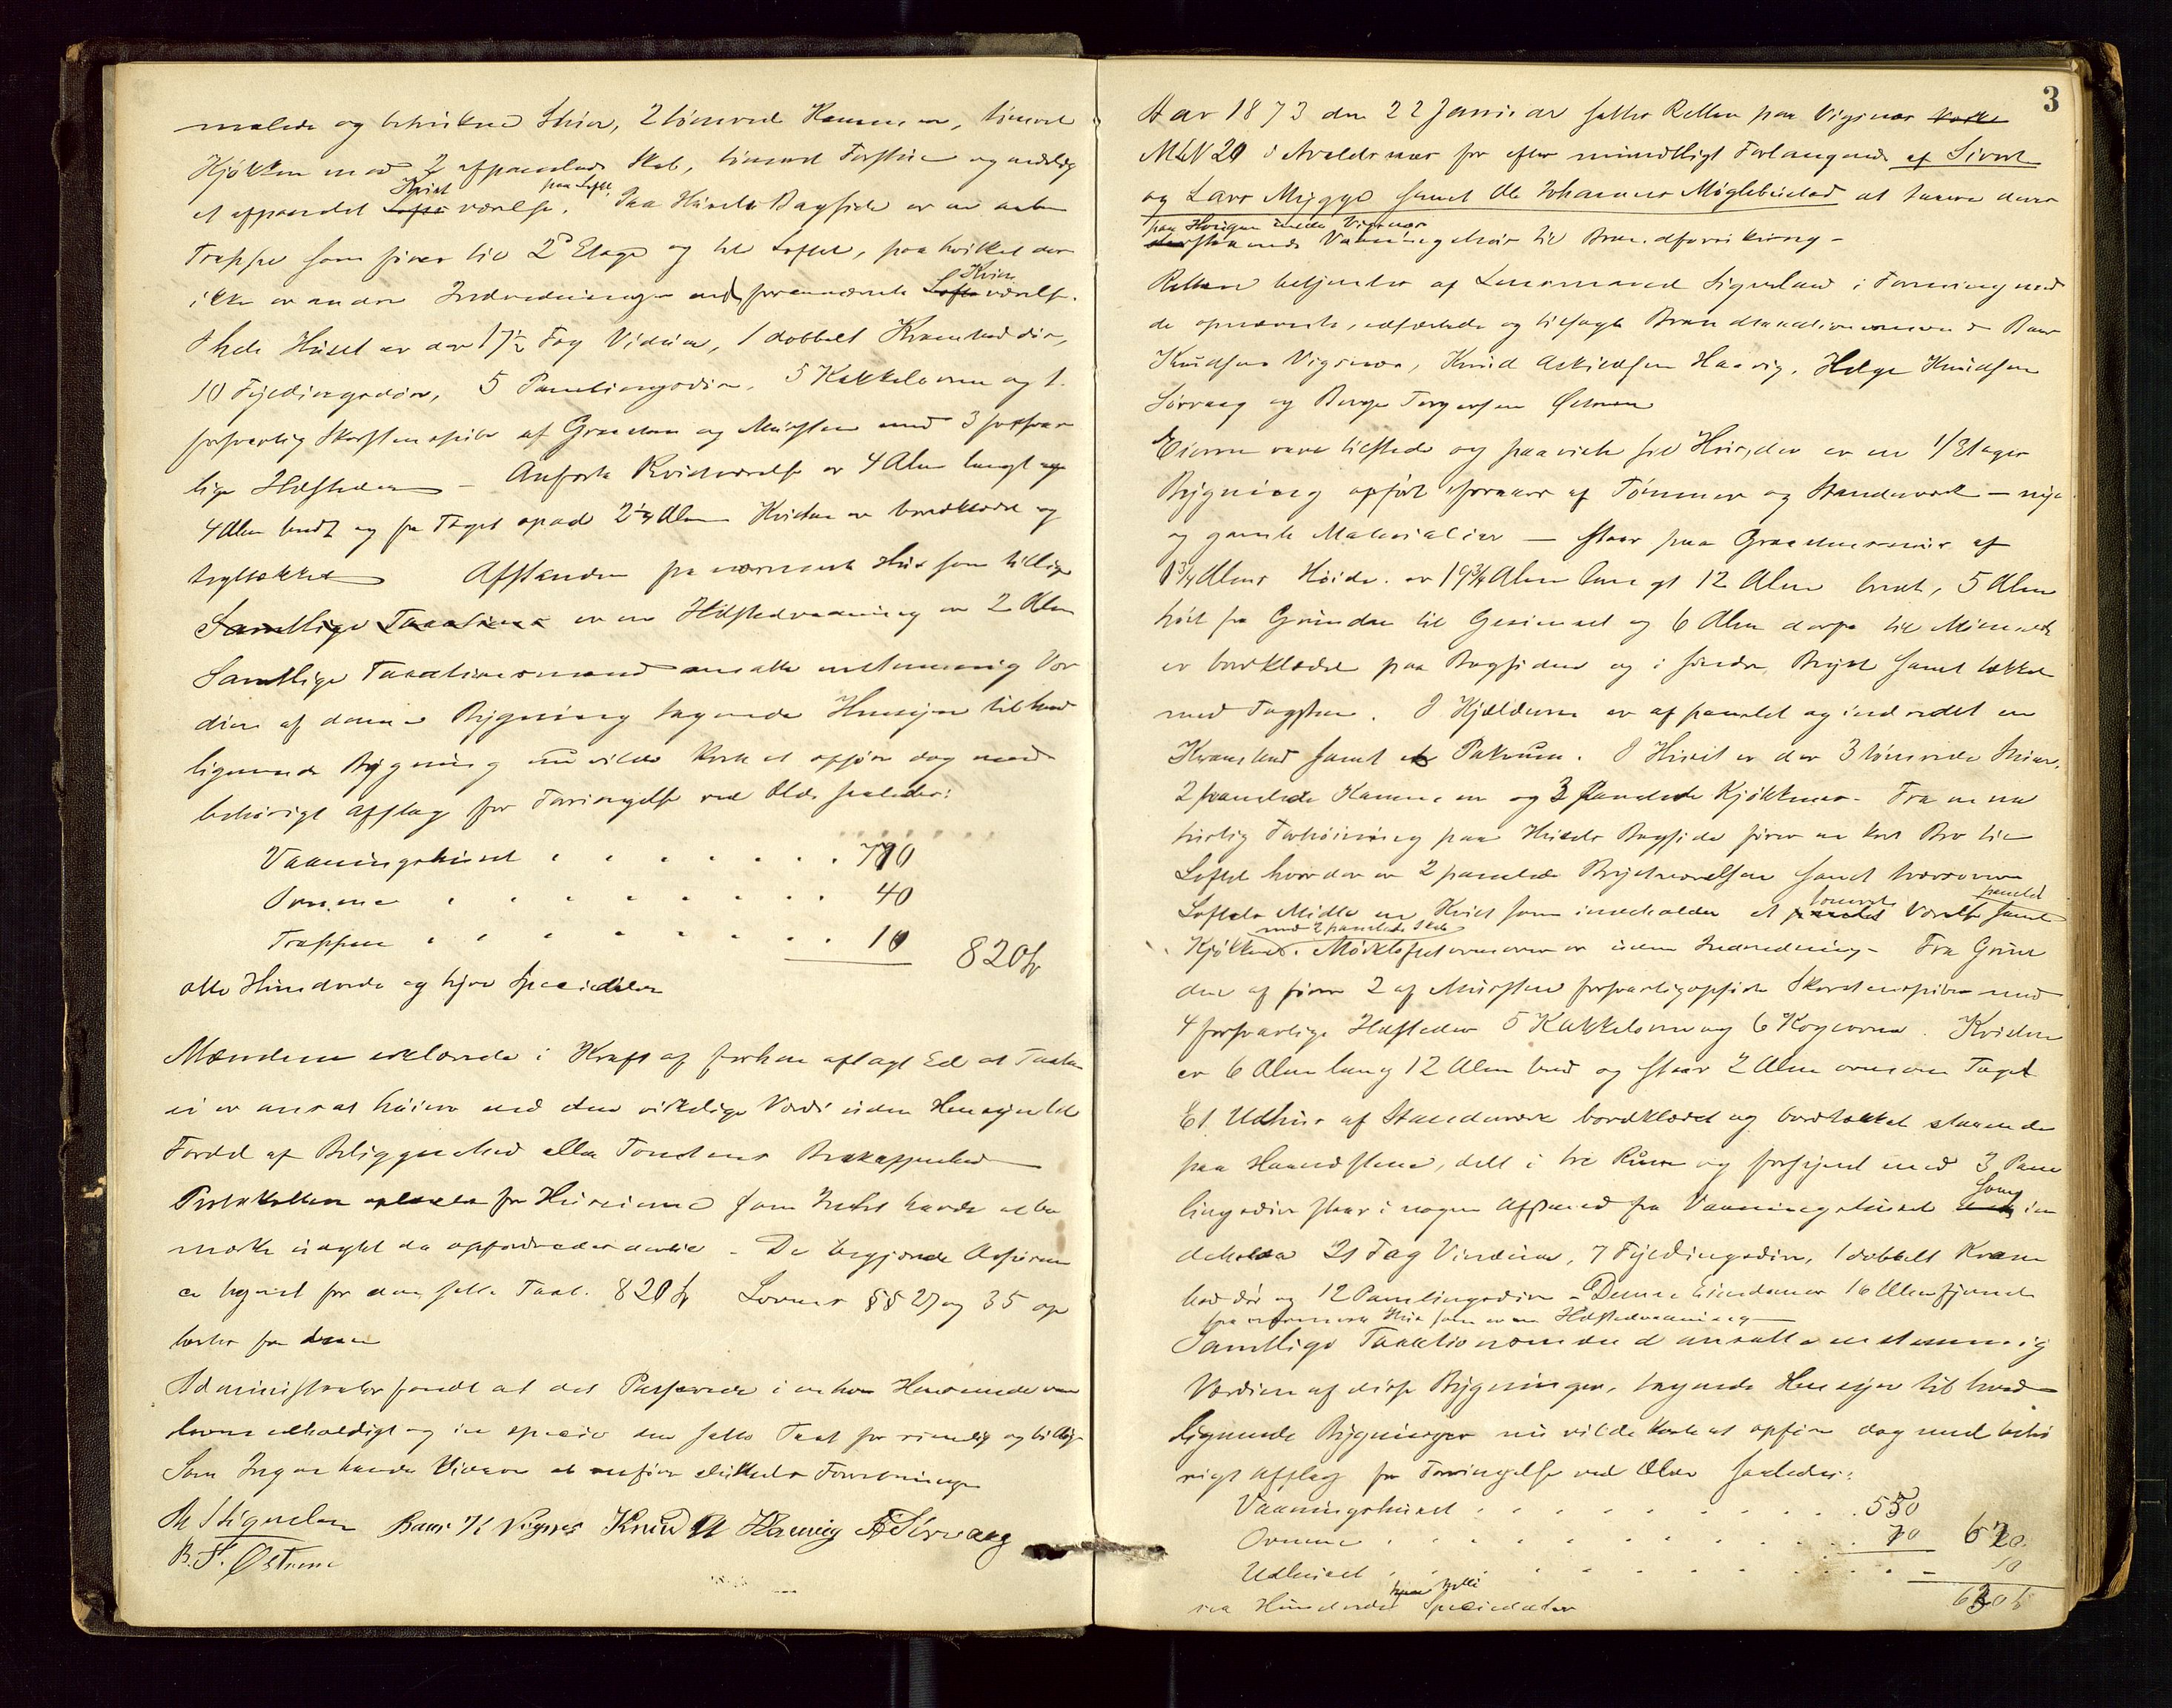 malede og betrukne Stuer, 2 tömrede Kammere, tömret
Kjøkken med 2 afpanelede Skab, tömret Forstue og endelig
et afpanelet Lofts Kvist værelse paa Loftet. Paa Husets Bagside er en aaben
Trappe som förer til 2d Etage og til Loftet, paa hvilket der
ikke er anden Indredninger end forannævnte Lofts Kvist værelse.
I hele Huset er der 17½ Fag Vinduer, 1 dobbelt Kramboddör,
10 Fyldingsdöre, 5 Panelingsdöre, 5 Kakkelovne og 1
forsvarlig Skorstenspibe af Graasten og Mursten med 3 forsvar
lige Ildsteder – Anförte Kvistværelse er 4 Alen langt og
4 Alen bredt og fra Taget opad 2¼ Alen Kvisten er bordklædt og
tegltækket Afstanden fra nærmeste Hus som tillige
Samtlige Taxations er en Ildstedvaaning er 2 Alen
Samtlige Taxationsmænd ansatte enstemmig Vær
dien af denne Bygning tagende Hensyn til hvad
lignende Bygning nu vilde koste at opföre dog med
behörigt Afslag for Forringelse ved Ælde saaledes:
Vaaningshuset . . . . . . . 770
Ovnene . . . . . . . . 40
Trappen . . . . . . . . 10 820 Sp
otte Hundrede og tyve Speciedaler
Mændene erklærede i Kraft af forhen aflagt Ed at Taxten
ei er ansat höiere end den virkelige Værdi uden Hensyn til
Fordel af Beliggenhed eller Tomtens Beskaffenhed
Protokollen oplæstes for Huseierne som Intet havde at be
mærke engang da opfordrede dertil – De begjærede Assuran
ce tegnet for den satte Taxt. 820 Sp Lovens §§ 27 og 35 op
læstes for dem
Administrator fandt at det Passerede i enhver Henseende var
lovmedholdigt og in specie den satte Taxt for rimelig og billig
Som Ingen havde Videre at anföre sluttedes Forretningen
Baar K Vignes Knud A Haavig H K Sörvaag
B. T. Østrem
3
Aar 1873 den 22 Januar sattes Retten paa Vigsnæs
MLN 20 i Avaldsnæs for efter mundtligt Forlangende af Sivert
og Lars Mygge samt Ole Johannes Møglebustad at taxere deres
paa Husgrund under Vigsnæs
staaende Vaaningshus til Brandforsikring –
Retten betjentes af Lensmand Signeland i Forening med
de opnævnte, edfæstede og tilsagte Brandtaxationsmænd Baar
Knudsen Vigsnæs, Knud Askildsen Haavig, Helge Knudsen
Sörvaag og Berge Torgersen Østrem
Eierne vare tilstede og paaviste sit Hus, der er en 1 Etages
Bygning opfört iforaar af Tömmer og Standerværk – nye
og gamle Materialier – staar paa Graastensmur af
1¾ Alens Höide. er 19¾ Alen langt 12 Alen bredt, 5 Alen
höit fra Grunden til Gesimset og 6 Alen derfra til Mönnet
er bordklædt paa Bagsiden og i söndre Bryst samt tækket
med Tagsten. I Kjælderen er afpanelet og indredet en
Krambod samt et Pakrum. I Huset er der 3 tömrede Stuer,
2 panelede Kammere og 3 panelede Kjøkkener. Fra en na
turlig Forhöining paa Husets Bagside förer en kort Bro til
Loftet hvor der er 2 panelede Brystværelser samt tversover
Loftets Midte en Kvist som indeholder et tömret Værelse samt panelet
Kjøkken med 2 panelede Skabe. Mörkloftet ovenover er uden Indredning – Fra Grun
den af förer 2 af Mursten forsvarlig opförte Skorstenspiber med
4 forsvarlige Ildsteder 5 Kakkelovne og 6 Kogeovne. Kvisten
er 6 Alen lang 12 Alen bred og staar 2 Alen ovenover Taget
Et Udhus af Standerværk bordklædet og bordtækket staaende
paa Haandstene, delt i tre Rum og forsynet med 3 Pane
lingsdöre staar i nogen Afstand fra Vaaningshuset som in
deholder 21 Fag Vinduer, 7 Fyldingsdöre, 1 dobbelt Kram
boddör og 12 Panelingsdöre – Denne Eiendom er 16 Alen fjernet
fra nærmeste Hus som er en Ildstedvaaning –
Samtlige Taxationsmænd ansatte enstemmig
Værdien af disse Bygninger, tagende Hensyn til hvad
lignende Bygninger nu vilde koste at opföre dog med behö
rigt Afslag for Forringelse ved Ælde saaledes:
Vaaningshuset . . . . . . . . 550
Ovnene . . . . . . . . 70 620
Udhuset . . . . . . . . 10
sex Hundrede Speciedaler 630 Sp